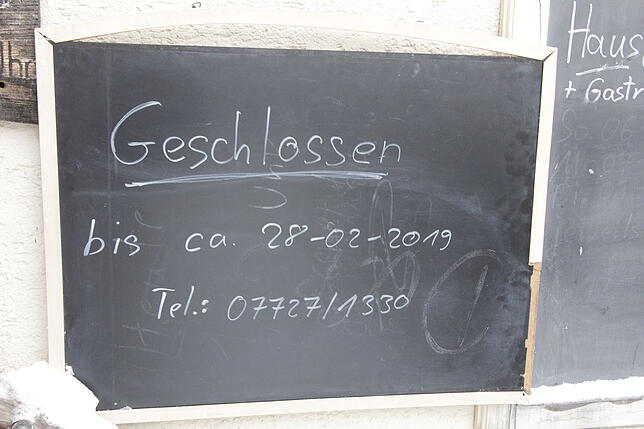 Geschlossen
bis ca. 28-02-2019
Tel.: 07727/1330
Haus
+ Gastr